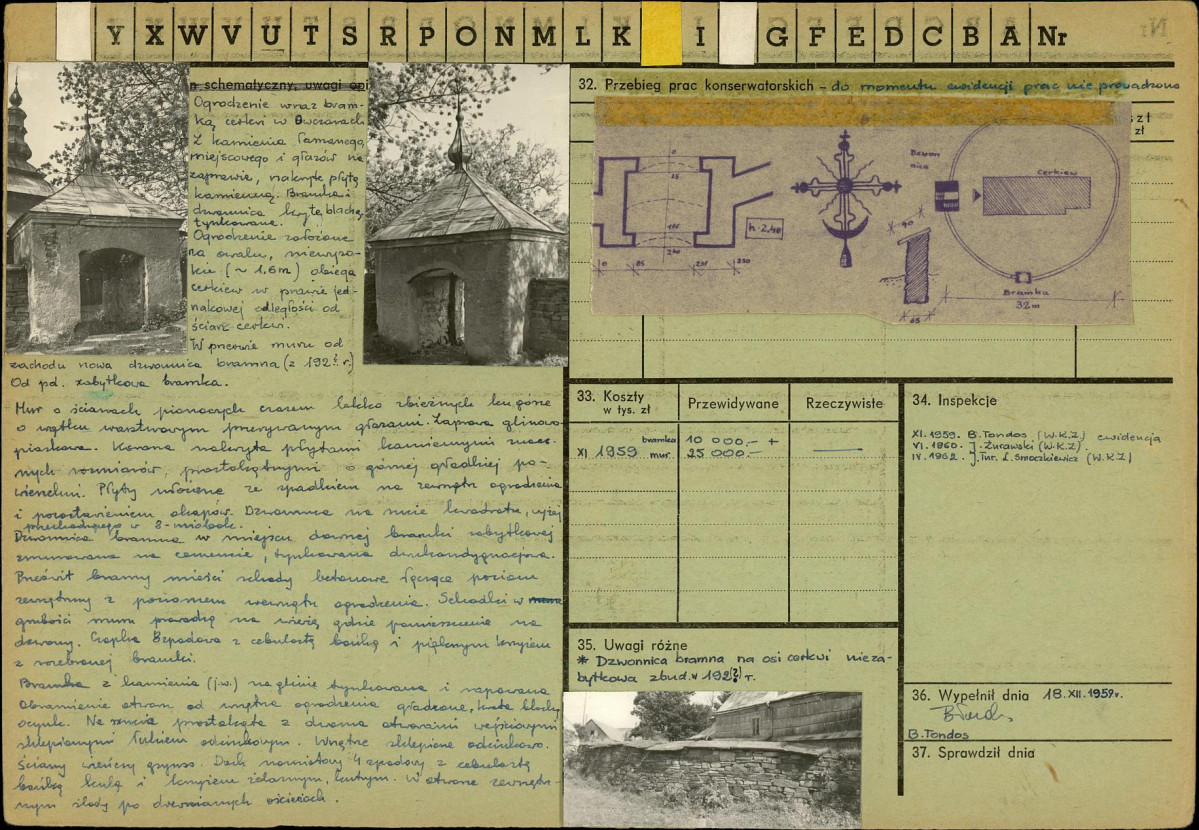 Y X W V U T S R P O N M L K I G F E D C B A Nr
n schematyczny, uwagi opi
Ogrodzenie wraz bram-
ką cerkwi w Owczarach
Z kamienia łamanego
miejscowego i głazów na
zaprawie, nakryte płytą
kamienną. Bramka i
dzwonnica kryte blachą,
tynkowane.
Ogrodzenie założone
na owalu, niewyso-
kie (~ 1,6m) obiega
cerkiew w prawie jed-
nakowej odległości od
ścian cerkwi.
W przerwie muru od
zachodu nowa dzwonnica bramna (z 192? r.)
Od pd. zabytkowa bramka.
Mur o ścianach pionowych czasem lekko zbieżnych ku górze
o wątku warstwowym przerywanym głazami. Zaprawa glinowo-
piaskowa. Korona nakryta płytami kamiennymi znacz-
nych rozmiarów, prostokątnymi o górnej gładkiej po-
wierzchni. Płyty ułożone ze spadkiem na zewnątrz ogrodzenia
i pozostawieniem okapów. Dzwonnica na rzucie kwadratu, wyżej
przechodzącego w 8-miobok.
Dzwonnica bramna w miejscu dawnej bramki zabytkowej
zmurowana na cemencie, tynkowana dwukondygnacjowa.
Prześwit bramy mieści schody betonowe łączące poziom
zewnętrzny z poziomem wewnątrz ogrodzenia. Schodki w
grubości muru prowadzą na wieżę, gdzie pomieszczenie na
dzwony. Czapka 8spadowa z cebulastą bańką i pięknym krzyżem
z rozebranej bramki.
Bramka z kamienia (j.w.) na glinie tynkowana i
Obramienie otworu od wnętrza ogrodzenia gładzone, kryta blachą
ocynk. Na rzucie prostokąta z dwoma otworami wejściowymi
sklepionymi łukiem odcinkowym. Wnętrze sklepione odcinkowo.
Ściany wieńczy gzyms. Dach namiotowy 4 spadowy z cebulastą
bańką kulą i krzyżem żelaznym, kutym. W otworze zewnętrz-
nym ślady po drewnianych ościeżach.
32. Przebieg prac konserwatorskich - do momentu ewidencji prac nie prowadzono
szt
zł
h=2,40
0 85 235 320
90
65
Dzwon
nica
cerkiew
Bramka
32m
33. Koszty
w tys. zł
Przewidywane
Rzeczywiste
XI 1959 bramka 10 000.- +
mur. 25 000.-
34. Inspekcje
XI. 1959. B. Tondos (W.K.Z) ewidencja
VI. 1960. J. Żurawski (W.K.Z).
IV. 1962. J. Tur. Ł. Smoczkiewicz (W.K.Z)
35. Uwagi różne
* Dzwonnica bramna na osi cerkwi nieza-
bytkowa zbud. w 192(?) r.
36. Wypełnił dnia 18.XII.1959r.
B. Tondos
B. Tondos
37. Sprawdził dnia